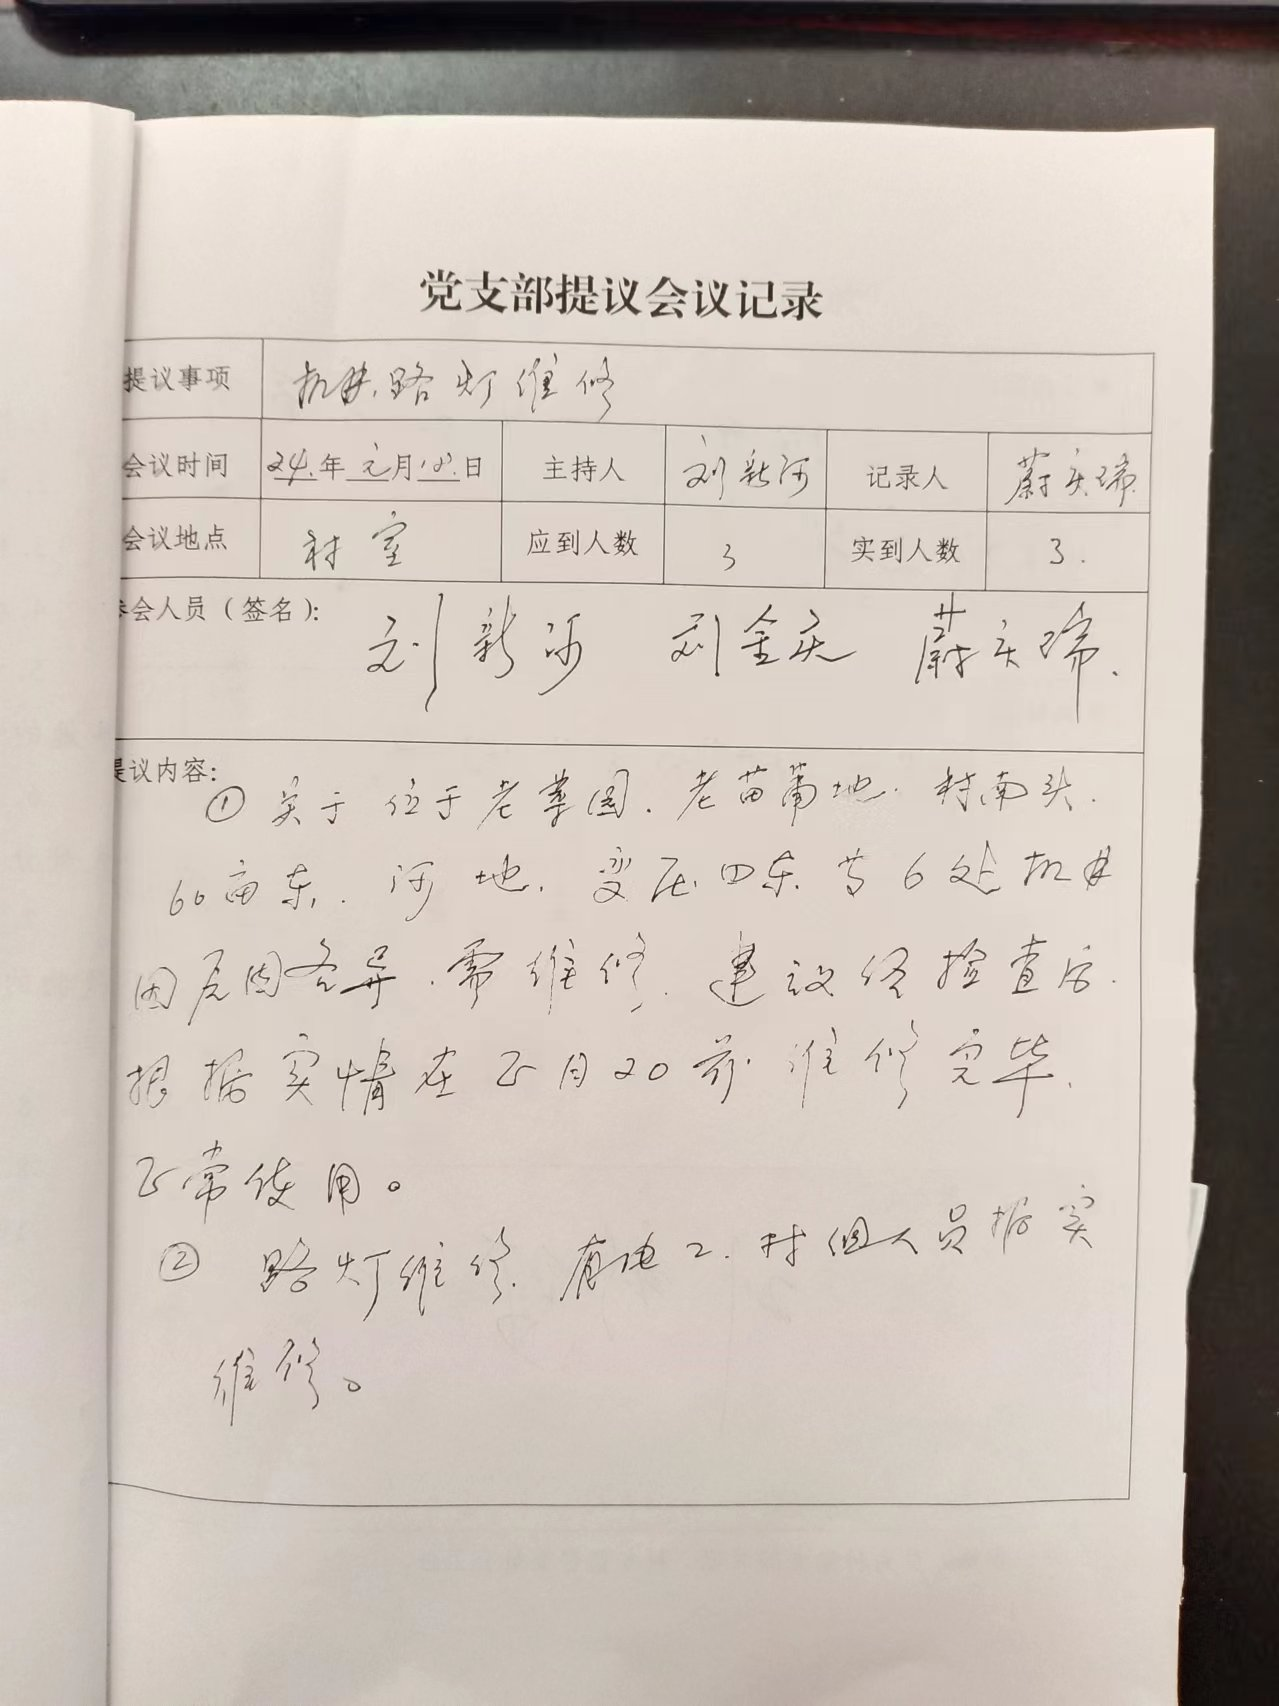 党支部提议会议记录
提议事项 机井.路灯维修
会议时间 24.年 元月18.日 主持人 刘新河 记录人 蔚庆瑞
会议地点 村室 应到人数 3 实到人数 3.
参会人员(签名): 刘新河 刘金庆 蔚庆瑞.
提议内容:
①关于位于老 园.老苗 地.村南头.
60亩东.河地.变压四东.等6处机井
因原因各异.需维修.建议经检查后.
根据实情在正月20前维修完毕.
正常使用。
② 路灯维修.有电工.村 人员据实
维修。